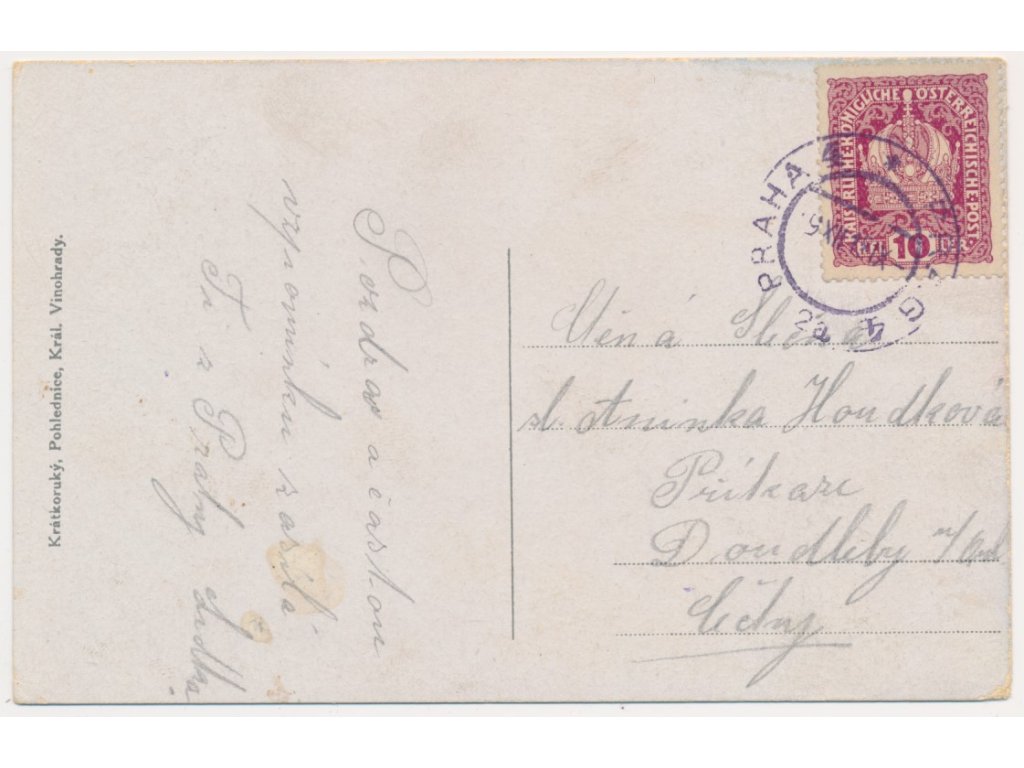 Krátkoruký, Pohlednice, Král. Vinohrady.
Pozdrav a častou
vzpomínku zasílá
Fr z Prahy
KAISERLICHE KÖNIGLICHE ÖSTERREICHISCHE POST
10
PRAHA 4
Ctěná Slečna
sl. Aninka Houdková
Příkazi
Doudleby n/Orl
Čechy